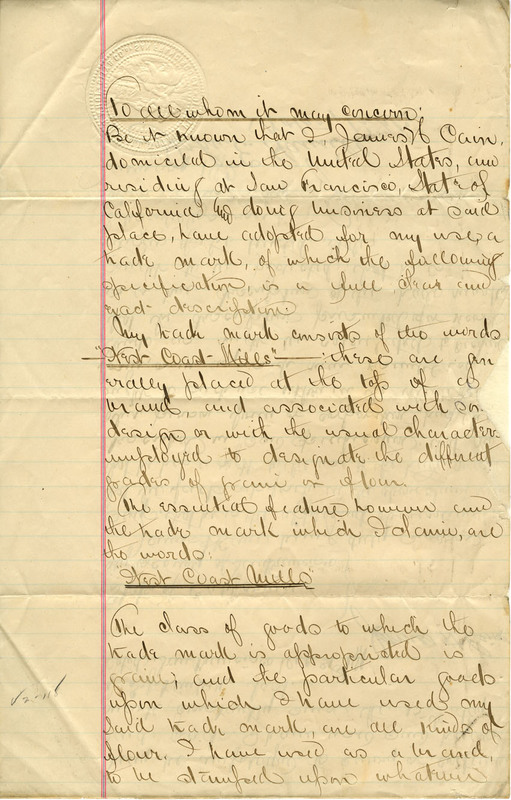 To all whom it may concern:
Be it known that I, James Cain,
domiciled in the United States, and
residing at San Francisco, State of
California & doing business at said
place, have adopted for my use, a
trade mark, of which the following
specification, is a full, clear and
exact description.
My trade mark consists of the words
"West Coast Mills" these are gen
erally placed at the top of a
brand, and associated with some
design or with the usual characters
employed to designate the different
grades of grain or flour.
The essential feature however and
the trade mark which I claim, are
the words:
"West Coast Mills"
The class of goods to which the
trade mark is appropriated is
grain; and the particular goods
upon which I have used my
said trade mark, are all kinds of
flour. I have used as a brand,
to be stamped upon whatever